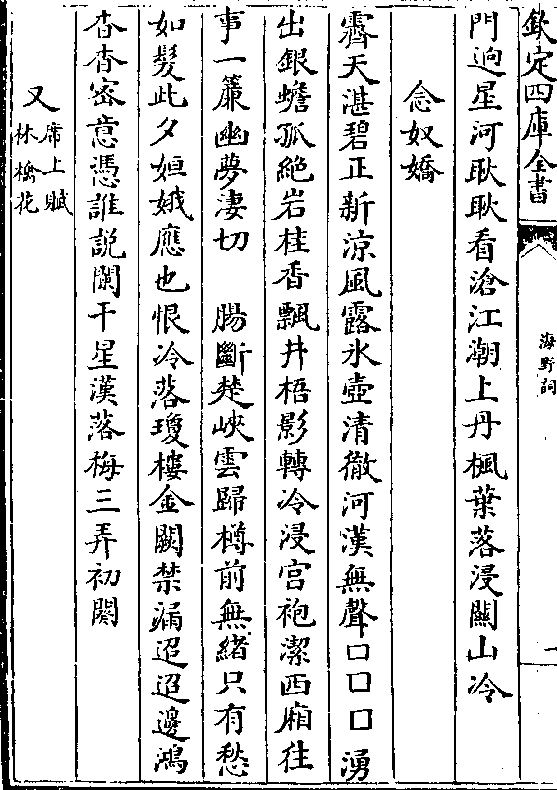 欽定四庫全書
海野詞
門迥星河耿耿看滄江潮上丹楓葉落浸關山冷
念奴嬌
霽天湛碧正新涼風露氷壺清徹河漢無聲口口口湧
出銀蟾孤絶岩桂香飄井梧影轉冷浸宫袍潔西廂往
事一簾幽夢凄切　腸斷楚峽雲歸樽前無緒只有愁
如髮此夕姮娥應也恨冷落瓊樓金闕禁漏迢迢邊鴻
杳杳密意憑誰説闌干星漢落梅三弄初闋
又席上賦林檎花